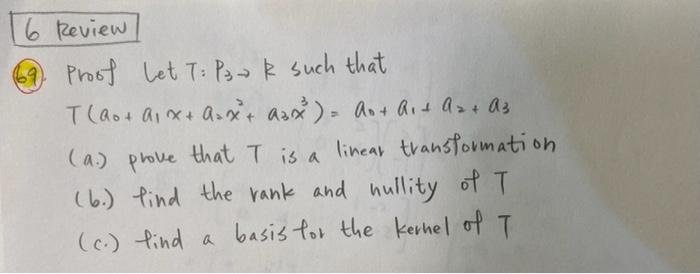 6 Review
69. Proof Let T: P₃→R such that
T(a₀+ a₁x+ a₂x²+ a₃x³) = a₀+ a₁+ a₂+ a₃
(a.) prove that T is a linear transformation
(b.) find the rank and nullity of T
(c.) find a basis for the kernel of T